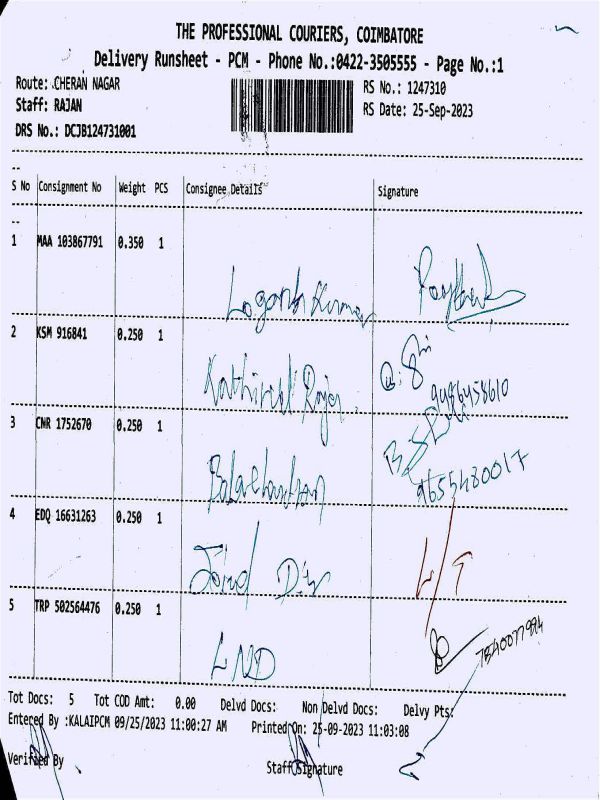 THE PROFESSIONAL COURIERS, COIMBATORE
Delivery Runsheet - PCM - Phone No.:0422-3505555 - Page No.:1
Route: CHERAN NAGAR RS No.: 1247310
Staff: RAJAN RS Date: 25-Sep-2023
DRS No.: DCJB124731001
S No Consignment No Weight PCS Consignee Details Signature
1 MAA 103867791 0.350 1
2 KSM 916841 0.250 1
Kathirvel Rajan 9486458610
3 CNR 1752670 0.250 1
9655480017
4 EDQ 16631263 0.250 1
5 TRP 502564476 0.250 1
LND
Tot Docs: 5 Tot COD Amt: 0.00 Delvd Docs: Non Delvd Docs: Delvy Pts:
Entered By :KALAIPCM 09/25/2023 11:00:27 AM Printed On: 25-09-2023 11:03:08
Verified By Staff Signature